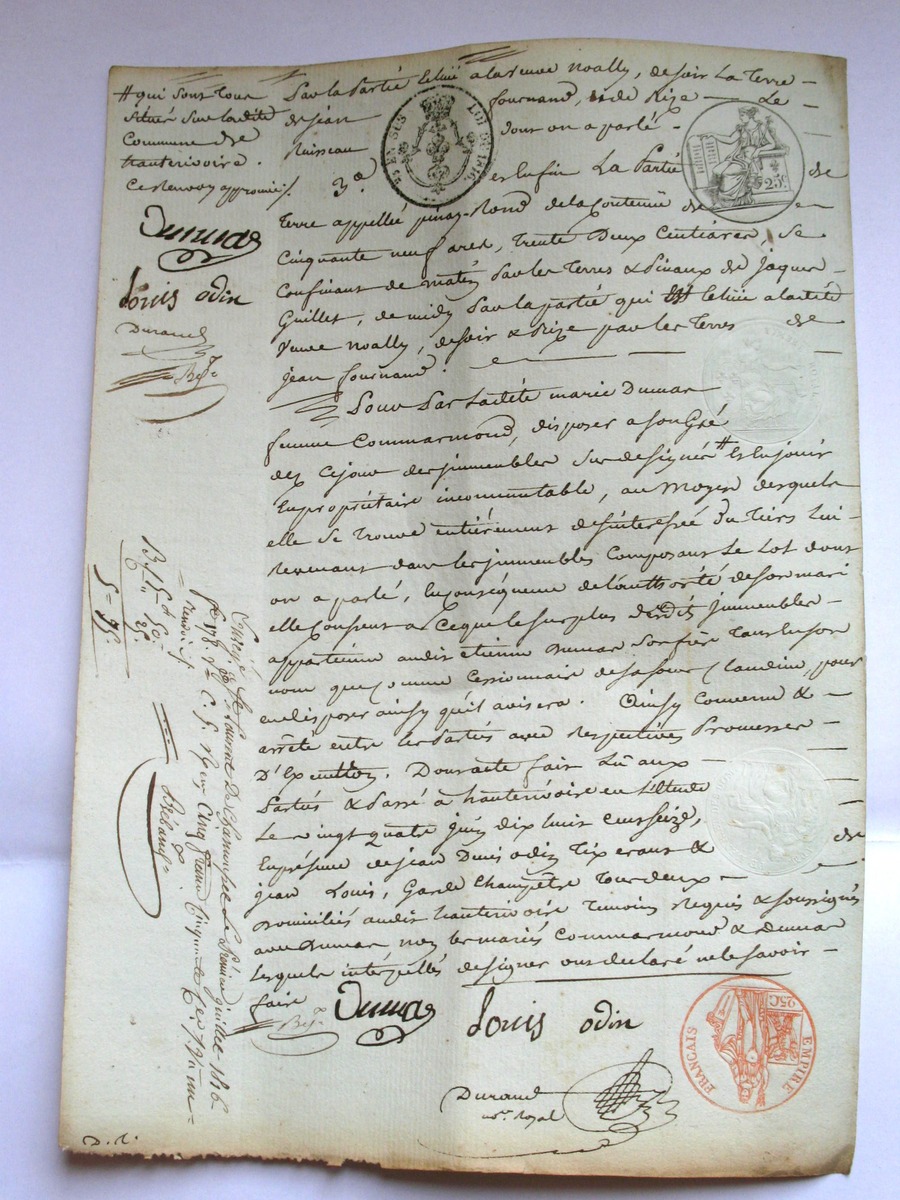 par la partie échue à la veuve Noally, de soir la terre
de jean fournand, et de bize le
ruisseau dont on a parlé.
3e. et enfin la partie de
terre appellée pinay-Rond de la Contenue de
Cinquante neuf ares, trente Deux Centiares, se
Confinant de matin par les terres & pinaux de Jaques
Guillet, de midy par la partie qui est échue à ladite
veuve Noally, de soir & bize par les terres de
jean fournand.
Pour par ladite marie Dumas
femme Commarmond, disposer a son Gré
dez Ce jour des jmmeubles sus designés # et en jouir
En propriétaire incommutable, au Moyen desquels
elle se trouve entièrement desinteressée du tiers lui
revenant dans les jmmeubles Composant Le Lot dont
on a parlé, En Conséquence de l'authorité de son mari
elle Consent a Ceque le surplus desdits jmmeubles
appartienne audit etienne Dumas son frère tant en son
nom que Comme Cessionnaire de sa sœur Claudine, pour
en disposer ainsy qu'il avisera. Ainsy Convenu &
arrêté entre les Parties avec respectives Promesses
D'Exécution. Dont acte fait Lu aux
Parties & Passé à hauterivoire en l'Etude
Le vingt quatre juin dix huit cent seize,
En présence de jean Denis odin tixerant &
jean Louis, Garde Champêtre tous deux
Domiciliés audit hauterivoire témoins Requis & soussignés
avec Dumas non les mariés Commarmond & Dumas
lesquels interpellés de signer ont déclaré ne le savoir
faire
# qui sont tous
situés sur ladite
Commune de
hauterivoire.
Ce renvoy approuvé /.
Dumas
Louis odin
Durand
EN SUS LOI DE 1816
25c.
Dumas
Louis odin
Durand
no.re Royal
EMPIRE FRANÇAIS
25C